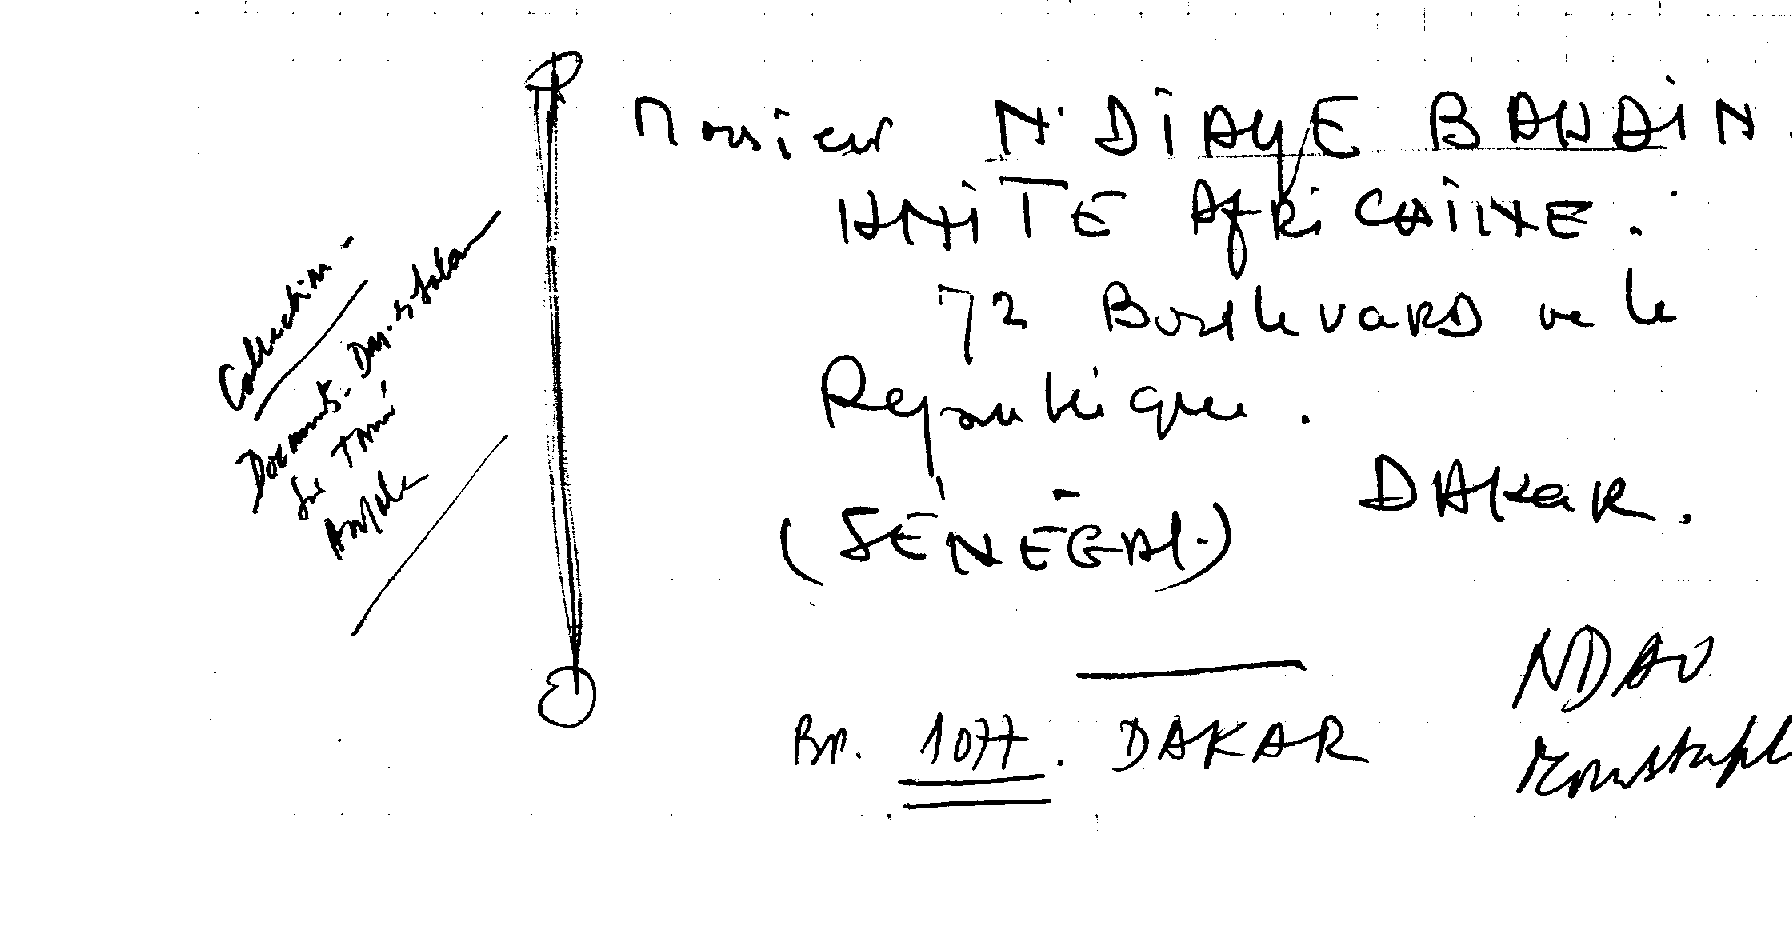 Collection.
Documents. Dar-es-Salam
Sur
Monsieur N'DiAYE BAUDiN.
UNiTÉ AfRiCAiNE.
72 BoulevaRD de la
République.
DAkaR.
(SÉNÉGAL.)
BP. 1077. DAKAR
NDAO
Moustaph